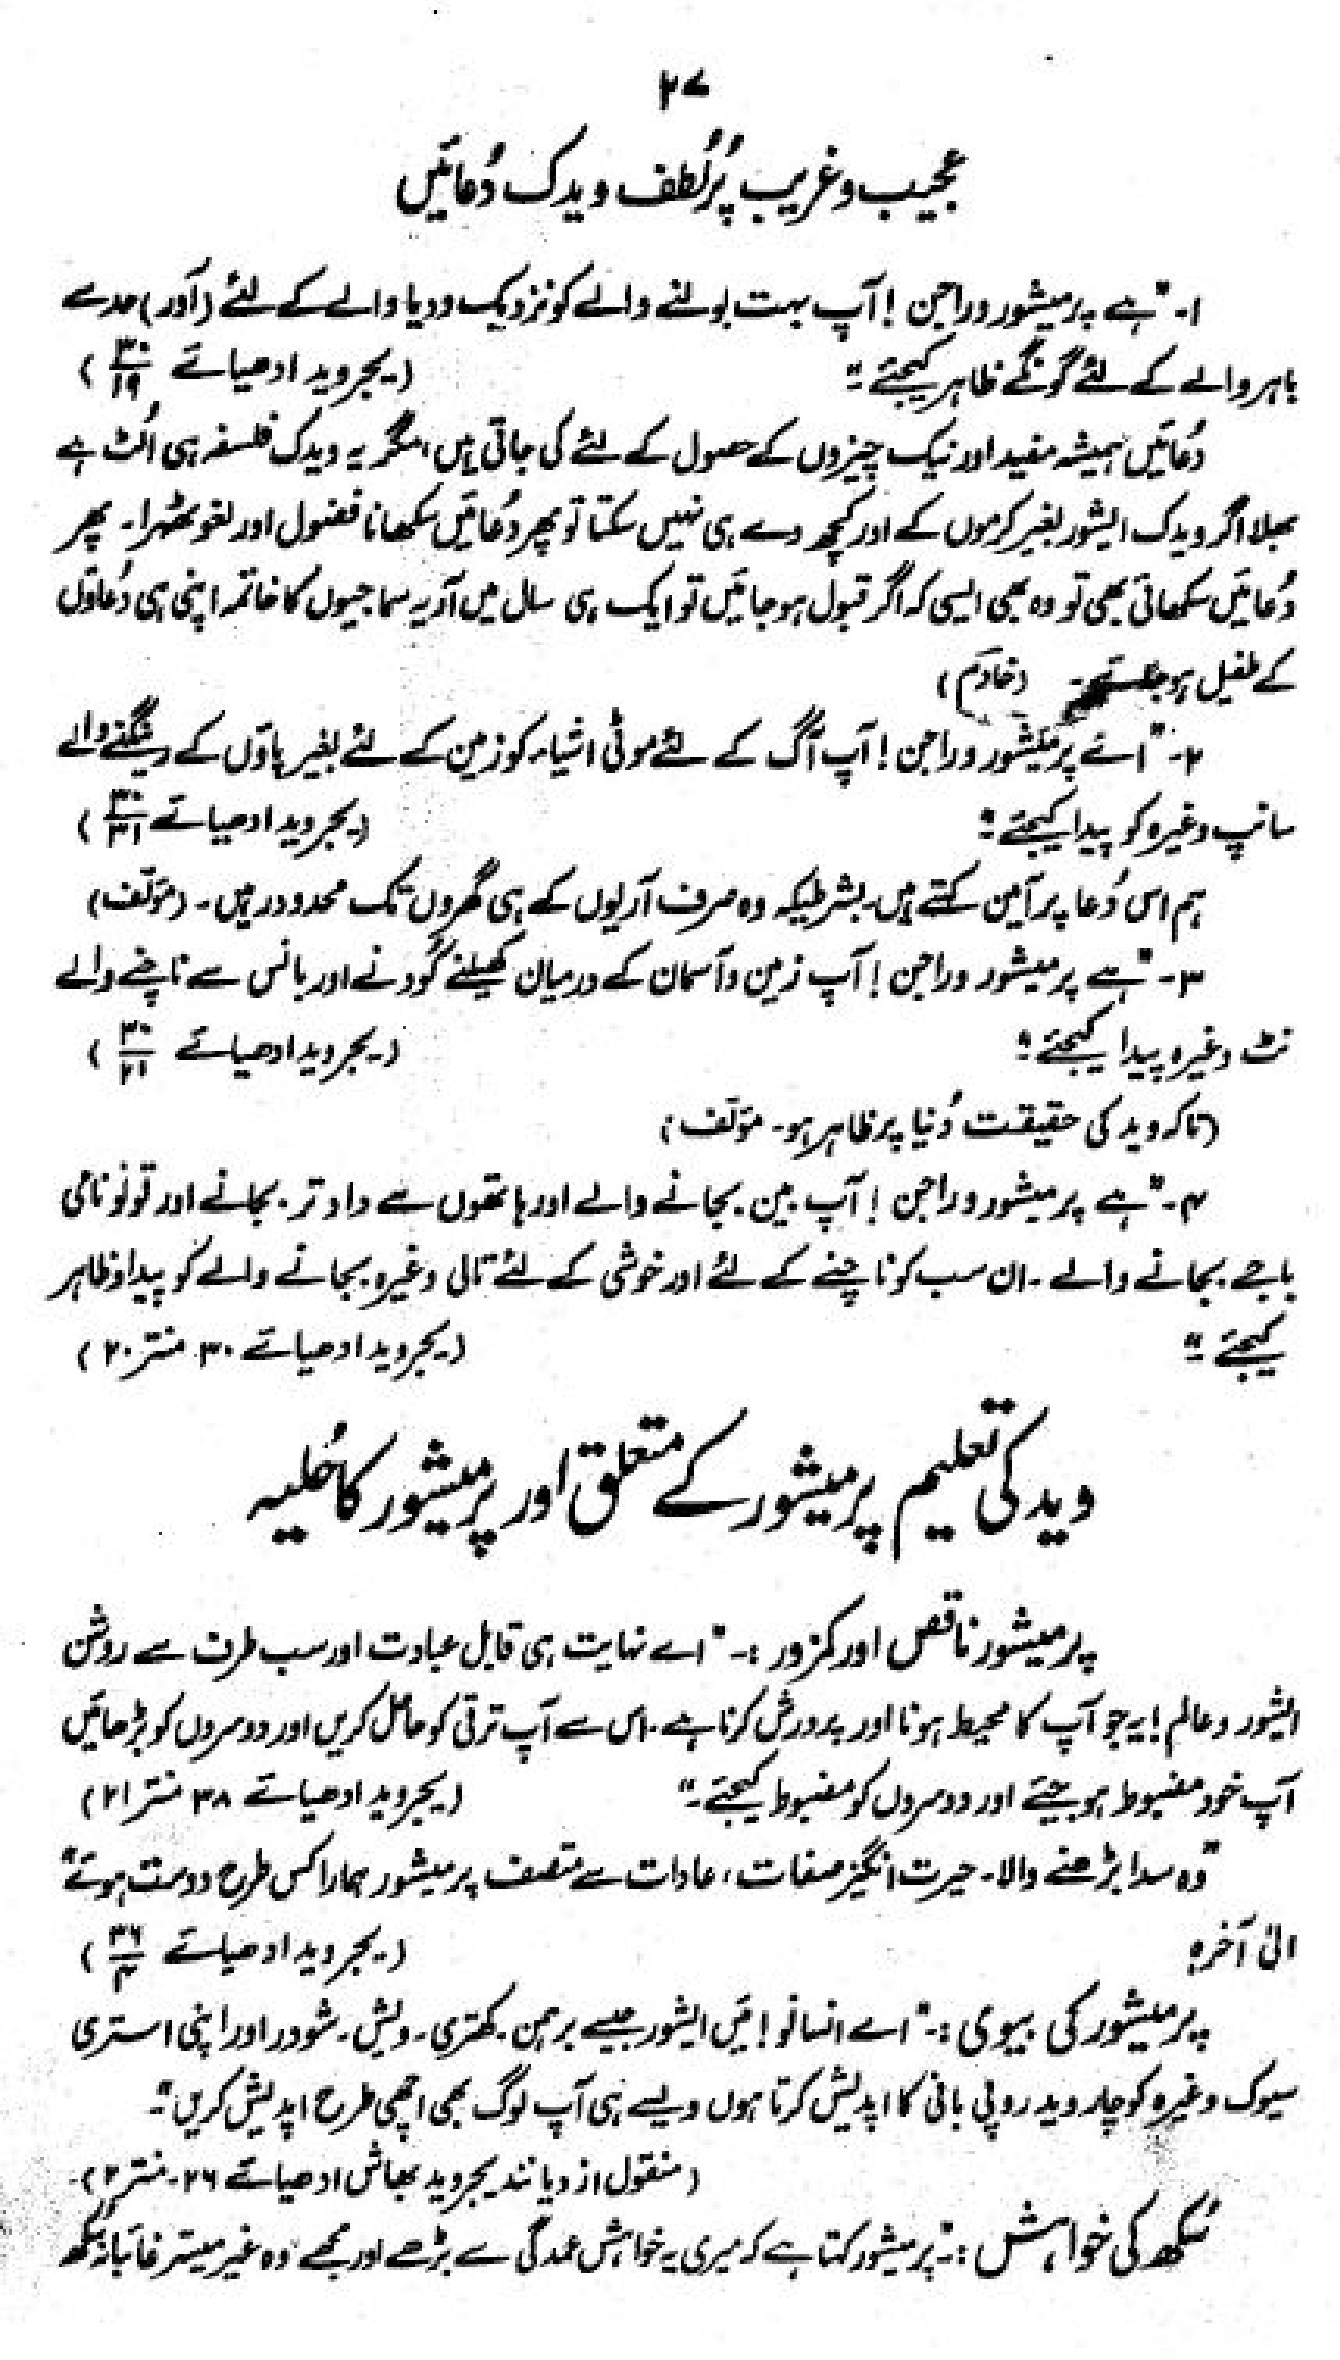 ۲۷
عجیب و غریب پُرلُطف ویدک دُعائیں
۱۔ "ہے پرمیشور وراجن! آپ بہت بولنے والے کو نزدیک ودیا والے کے لئے (اَور) حد سے
باہر والے کے لئے گونگے ظاہر کیجئے۔" (یجروید ادھیائے ۳۰/۱۹)
دُعائیں ہمیشہ مفید اور نیک چیزوں کے حصول کے لئے کی جاتی ہیں، مگر یہ ویدک فلسفہ ہی اُلٹ ہے
بھلا اگر ویدک ایشور بغیر کرموں کے اور کچھ دے ہی نہیں سکتا تو پھر دُعائیں سکھانا فضول اور لغو ٹھہرا۔ پھر
دُعائیں سکھائی بھی تو وہ بھی ایسی کہ اگر قبول ہو جائیں تو ایک ہی سال میں آریہ سماجیوں کا خاتمہ اپنی ہی دُعاؤں
کے طفیل ہو جائے۔ (خادم)
۲۔ "اے پرمیشور وراجن! آپ آگ کے لئے موٹی اشیاء کو زمین کے لئے بغیر پاؤں کے رینگنے والے
سانپ وغیرہ کو پیدا کیجئے" (یجروید ادھیائے ۳۰/۳۱)
ہم اس دُعا پر آمین کہتے ہیں۔ بشرطیکہ وہ صرف آریوں کے ہی گھروں تک محدود رہیں۔ (مؤلّف)
۳۔ "ہے پرمیشور وراجن! آپ زمین و آسمان کے درمیان کھیلنے کُودنے اور بانس سے ناچنے والے
نٹ وغیرہ پیدا کیجئے" (یجروید ادھیائے ۳۰/۲۱)
(تاکہ وید کی حقیقت دُنیا پر ظاہر ہو۔ مؤلّف)
۴۔ "ہے پرمیشور وراجن! آپ بین بجانے والے اور ہاتھوں سے دادتر بجانے اور تونو نامی
باجے بجانے والے۔ ان سب کو ناچنے کے لئے اور خوشی کے لئے تالی وغیرہ بجانے والے کو پیدا و ظاہر
کیجئے۔" (یجروید ادھیائے ۳۰ منتر ۲۰)
وید کی تعلیم پرمیشور کے متعلق اور پرمیشور کا حُلیہ
پرمیشور ناقص اور کمزور :۔ "اے نہایت ہی قابل عبادت اور سب طرف سے روشن
ایشور و عالم! یہ جو آپ کا محیط ہونا اور پرورش کرنا ہے۔ اس سے آپ ترقی کو حاصل کریں اور دوسروں کو بڑھائیں
آپ خود مضبوط ہو جیئے اور دوسروں کو مضبوط کیجئے۔" (یجروید ادھیائے ۳۸ منتر ۲۱)
"وہ سدا بڑھنے والا۔ حیرت انگیز صفات، عادات سے متصف پرمیشور ہمارا کس طرح دوست ہوئے"
الیٰ آخرہ (یجروید ادھیائے ۳۶/۴)
پرمیشور کی بیوی :۔ "اے انسانو! مَیں ایشور جیسے برہمن۔ کھتری۔ ویش۔ شودر اور اپنی استری
سیوک وغیرہ کو چار وید روپی بانی کا اپدیش کرتا ہوں ویسے ہی آپ لوگ بھی اچھی طرح اپدیش کریں"۔
(منقول از دیانند یجروید بھاش ادھیائے ۲۶۔ منتر ۲)۔
سُکھ کی خواہش :۔ "پرمیشور کہتا ہے کہ میری یہ خواہش عمدگی سے بڑھے اور مجھے وہ غیر میسّر غائبانہ سُکھ